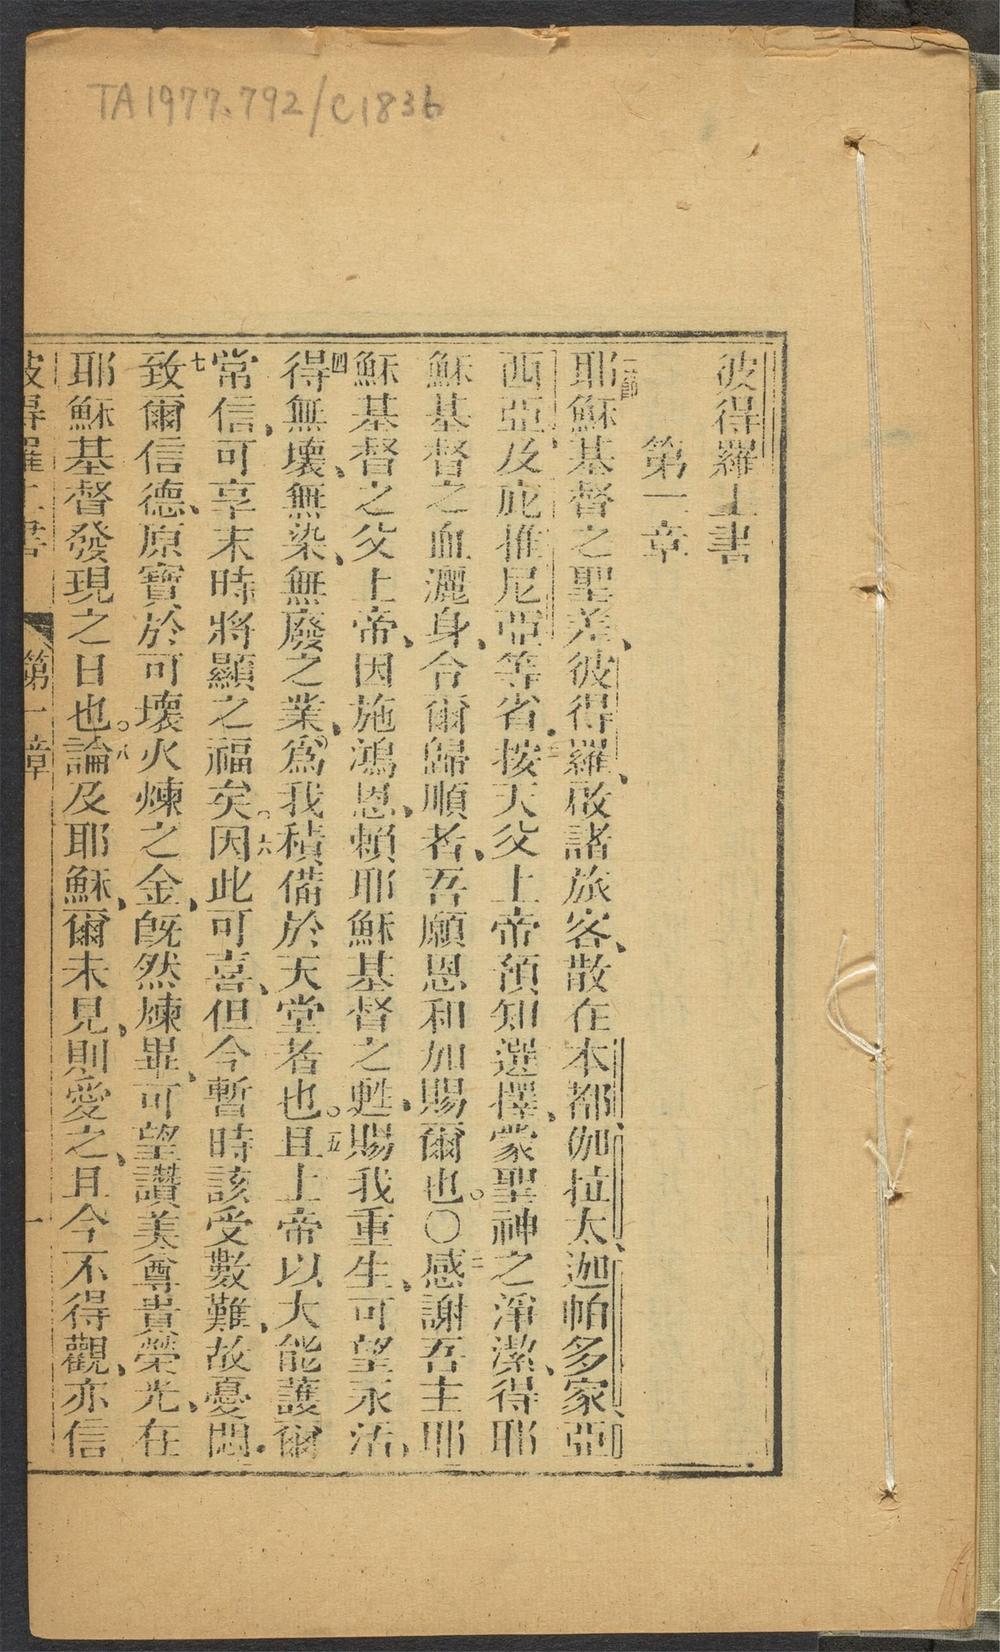 TA1977.792/C1836
彼得羅上書
第一章
一節耶穌基督之聖差、彼得羅、啟諸旅客、散在本都、伽拉太、迦帕多家、亞
西亞、及庇推尼亞等省、二按天父上帝預知選擇、蒙聖神之淨潔、得耶
穌基督之血灑身、令爾歸順者、吾願恩和加賜爾也。〇三感謝吾主耶
穌基督之父上帝、因施鴻恩、賴耶穌基督之甦、賜我重生、可望永活、
四得無壞、無染、無廢之業、爲我積備於天堂者也。五且上帝以大能護爾
常信、可享末時將顯之福矣。六因此可喜、但今暫時該受數難、故憂悶、
七致爾信德、原寶於可壞火煉之金、旣然煉畢、可望讚美尊貴榮光、在
耶穌基督發現之日也。八論及耶穌、爾未見、則愛之、且今不得觀、亦信
彼得羅上書 第一章 一